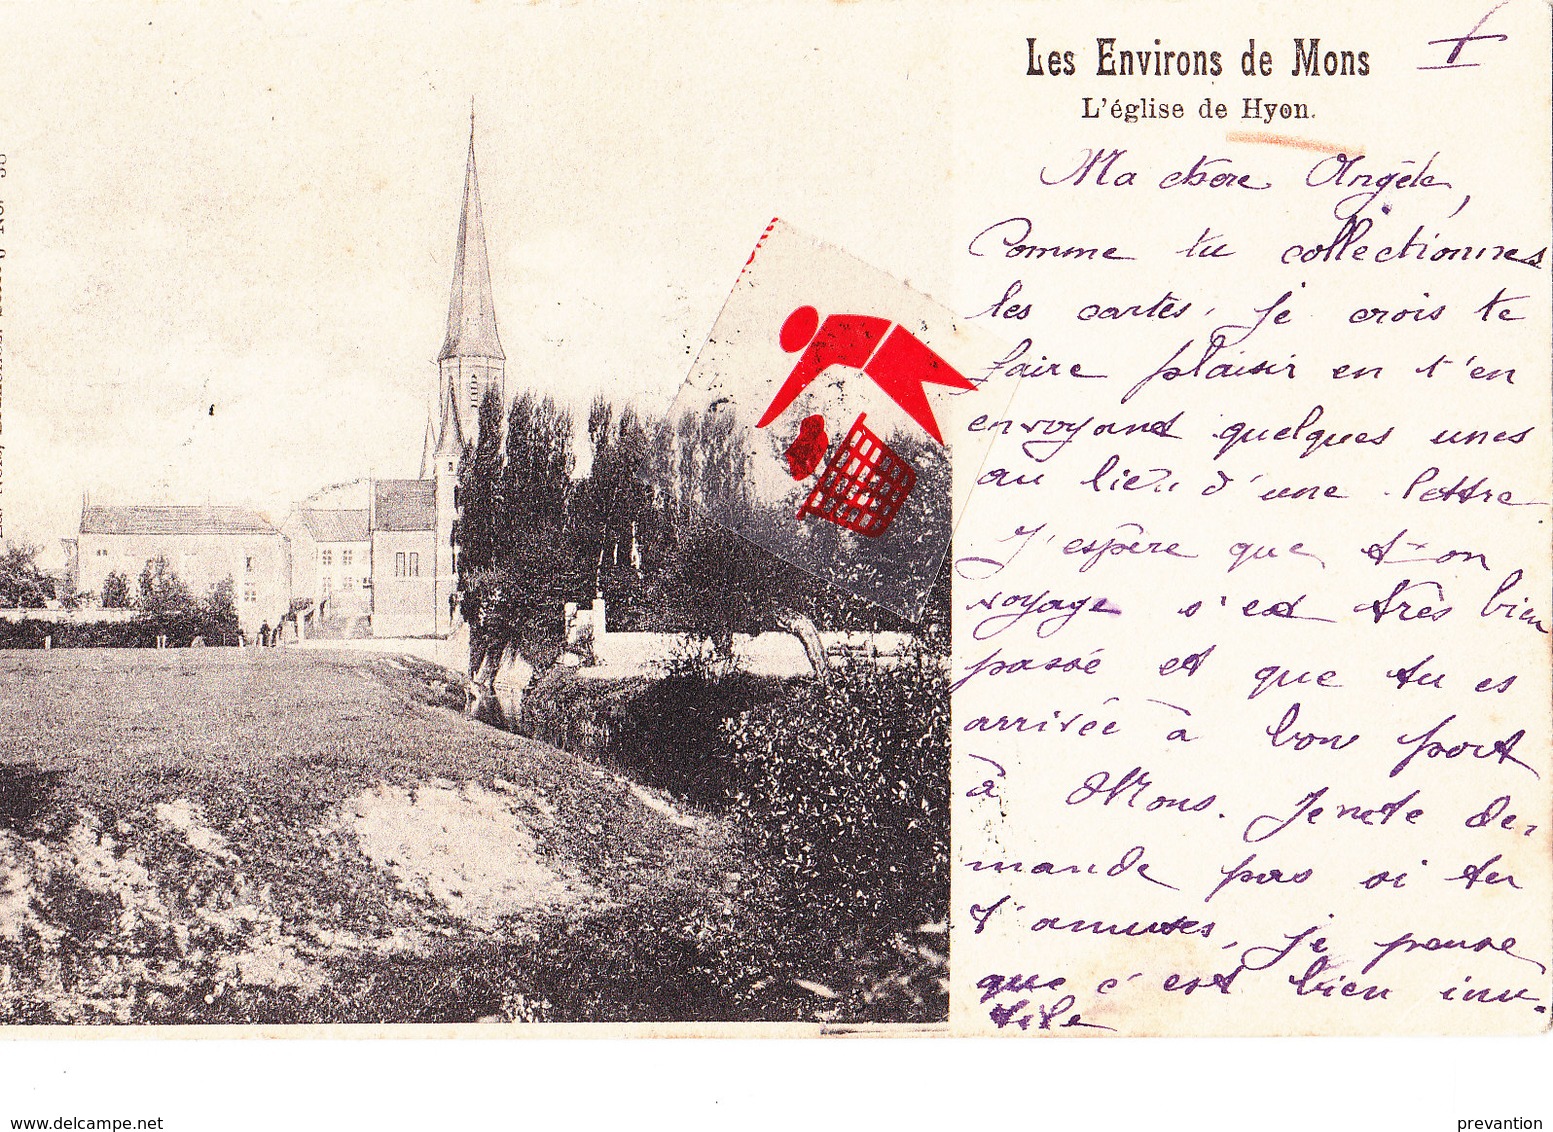 Les Environs de Mons
L'église de Hyon.
Ma chère Angèle,
Comme tu collectionnes
les cartes, je crois te
faire plaisir en t'en
envoyant quelques unes
au lieu d'une lettre
J'espère que ton
voyage s'est très bien
passé et que tu es
arrivée à bon port
à Mons. Je ne te de-
mande pas si tu
t'amuses, je pense
que c'est bien inu-
tile
www.delcampe.net
prevantion